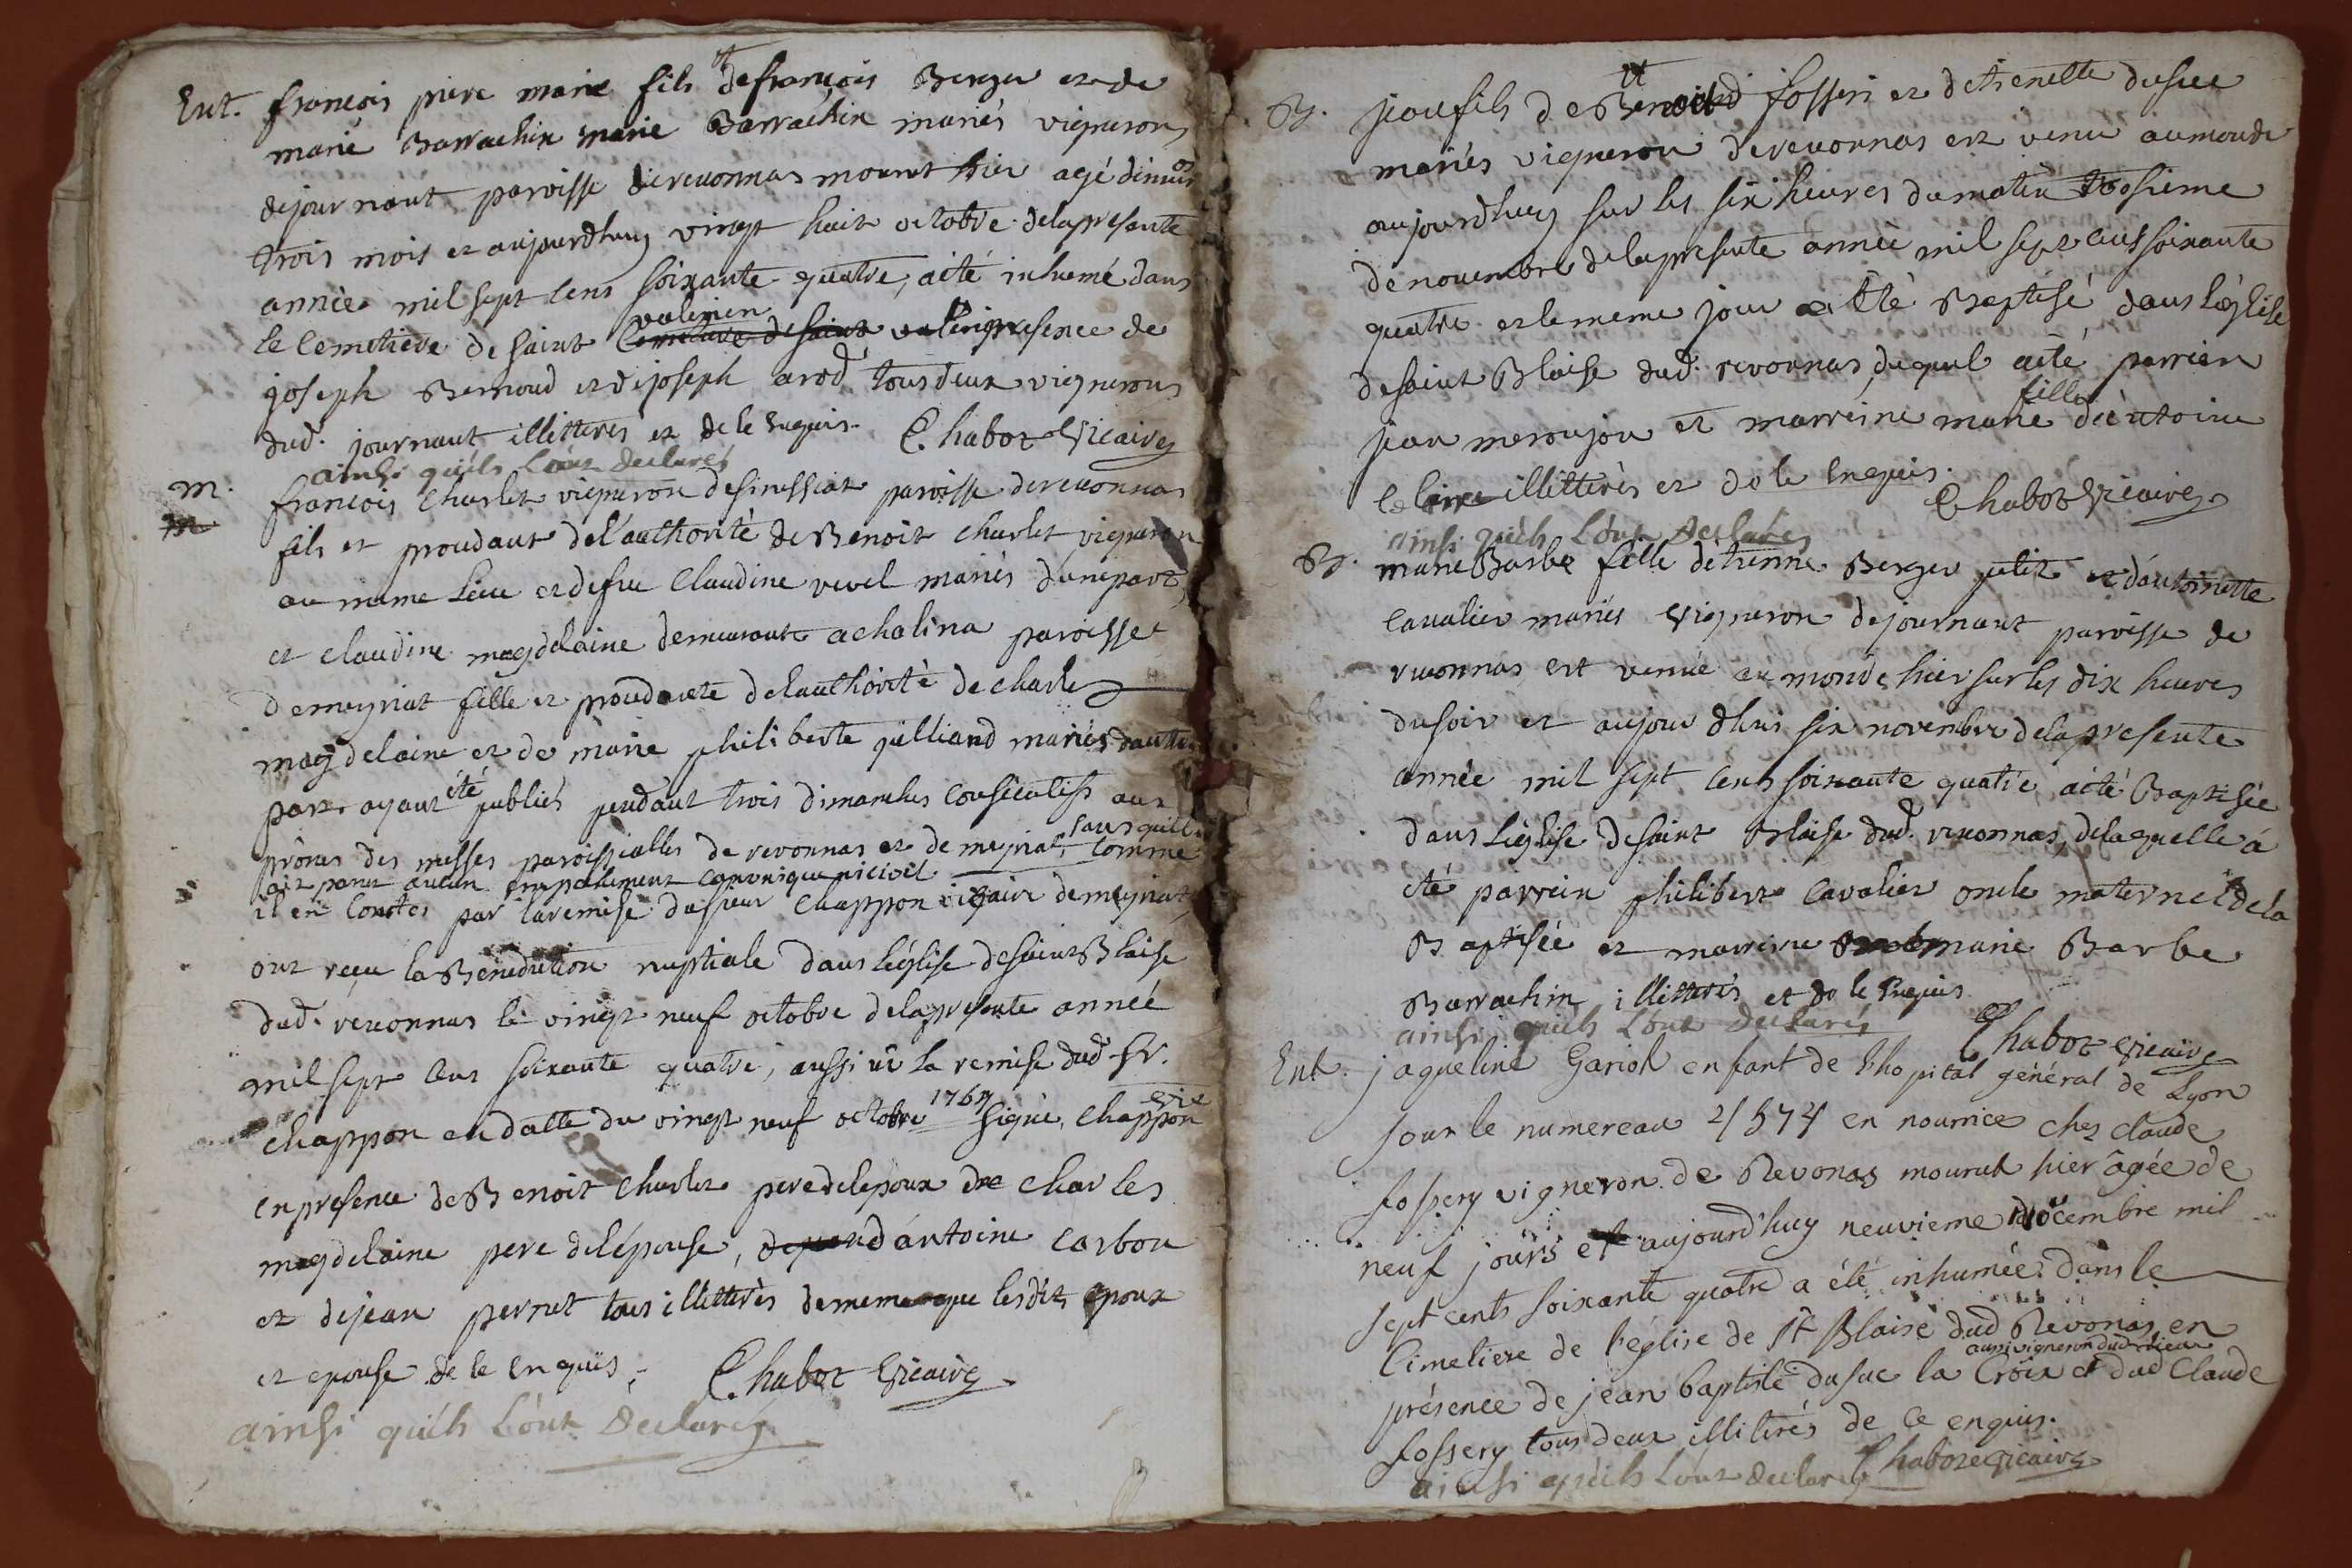 Ent. francois piere marie fils de francois Berger et de
marie Barrachin marie Barrachin mariés vignerons
de journant paroisse de revonnas mourut hier agé
trois mois et aujourdhuy vingt huit octobre de la presente
année mil sept cens soixante quatre, a été inhumé dans
valerien
le Cemetiere de saint Cemetiere de saint presence de
joseph Bernoud et de joseph arod tous deux vignerons
dud. journant illitterés et de le Enquis. Chabot Vicaire
ainsi qu'ils L'ont Declarés
m. francois Charlet vigneron de sinissiat paroisse de revonnas
m
fils et proudant de l'authorité de Benoit Charlet vigneron
au mime Lieu et de feu Claudine vevel mariés d'une part,
et Claudine magdelaine demeurant a chalina paroisse
de meyriat fille et proudante de l'authorité de charles
magdelaine et de marie philiberte guilliand mariés d'autre
part ayant été publiés pendant trois dimanches consécutifs aux
sans quil
prônes des messes paroissialles de revonnas et de meyriat, comme
ait parut aucun Empechement canonique ni civil
il en conste par la remise du sieur Chappon vicaire de meyriat,
ont reçu la Bénédiction nuptiale dans l'église de saint Blaise
dud. revonnas le vingt neuf octobre de la presente année
mil sept cens soixante quatre, aussi vû la remise dud Sr.
Chappon en datte du vingt neuf octobre 1764 signé, Chappon vic
en presence de Benoit Charlet pere de l'epoux de Charles
magdelaine pere de l'épouse, d'antoine carbon
et de jean pernet tous illitterés de meme que les dits epoux
et epouse de le Enquis, Chabot Vicaire
ainsi qu'ils L'ont Declarés
B. jean fils de Benoit fosseri et d'etienette dusuc
mariés vigneron de revonnas est venu au monde
aujourdhuy sur les six heures du matin troisieme
de novembre de la presente année mil sept cens soixante
quatre et le meme jour a été Baptisé dans l'église
de saint Blaise dud. revonnas, duquel a été parrien
fille
jean meroujon et marreine marie d'entoine
illitterés et de le Enquis.
Chabot Vicaire
ainsi qu'ils L'ont Declarés
B. marie Barbe fille d'etienne Berger petit et d'antoinette
Cavalier mariés Vigneron de journant paroisse de
revonnas est venüe au monde hier sur les dix heures
du soir et aujour dhui six novembre de la presente
année mil sept cens soixante quatre, a été Baptisée
dans l'église de saint Blaise dud. revonnas, de laquelle à
été parrein philibert Cavalier oncle maternel de la
Baptisée et marreine marie Barbe
Barrachin illitterés et de le Enquis
ainsi qu'ils L'ont Declarés
Chabot Vicaire
Ent. jaqueline Gariot enfant de l'hopital général de Lyon
sous le numereau 4574 en nourrice chez claude
fossery vigneron de Revonas mourut hier âgée de
neuf jours et aujourd'huy neuvieme décembre mil
sept cents soixante quatre a été inhumée dans le
Cimetiere de l'église de St Blaise dud Revonas en
aussi vigneron dud. Lieu
présence de jean baptiste dusuc la Croix et dud Claude
fossery tous deux illitirés de Ce enquis.
ainsi qu'ils L'ont declarés Chabot Vicaire